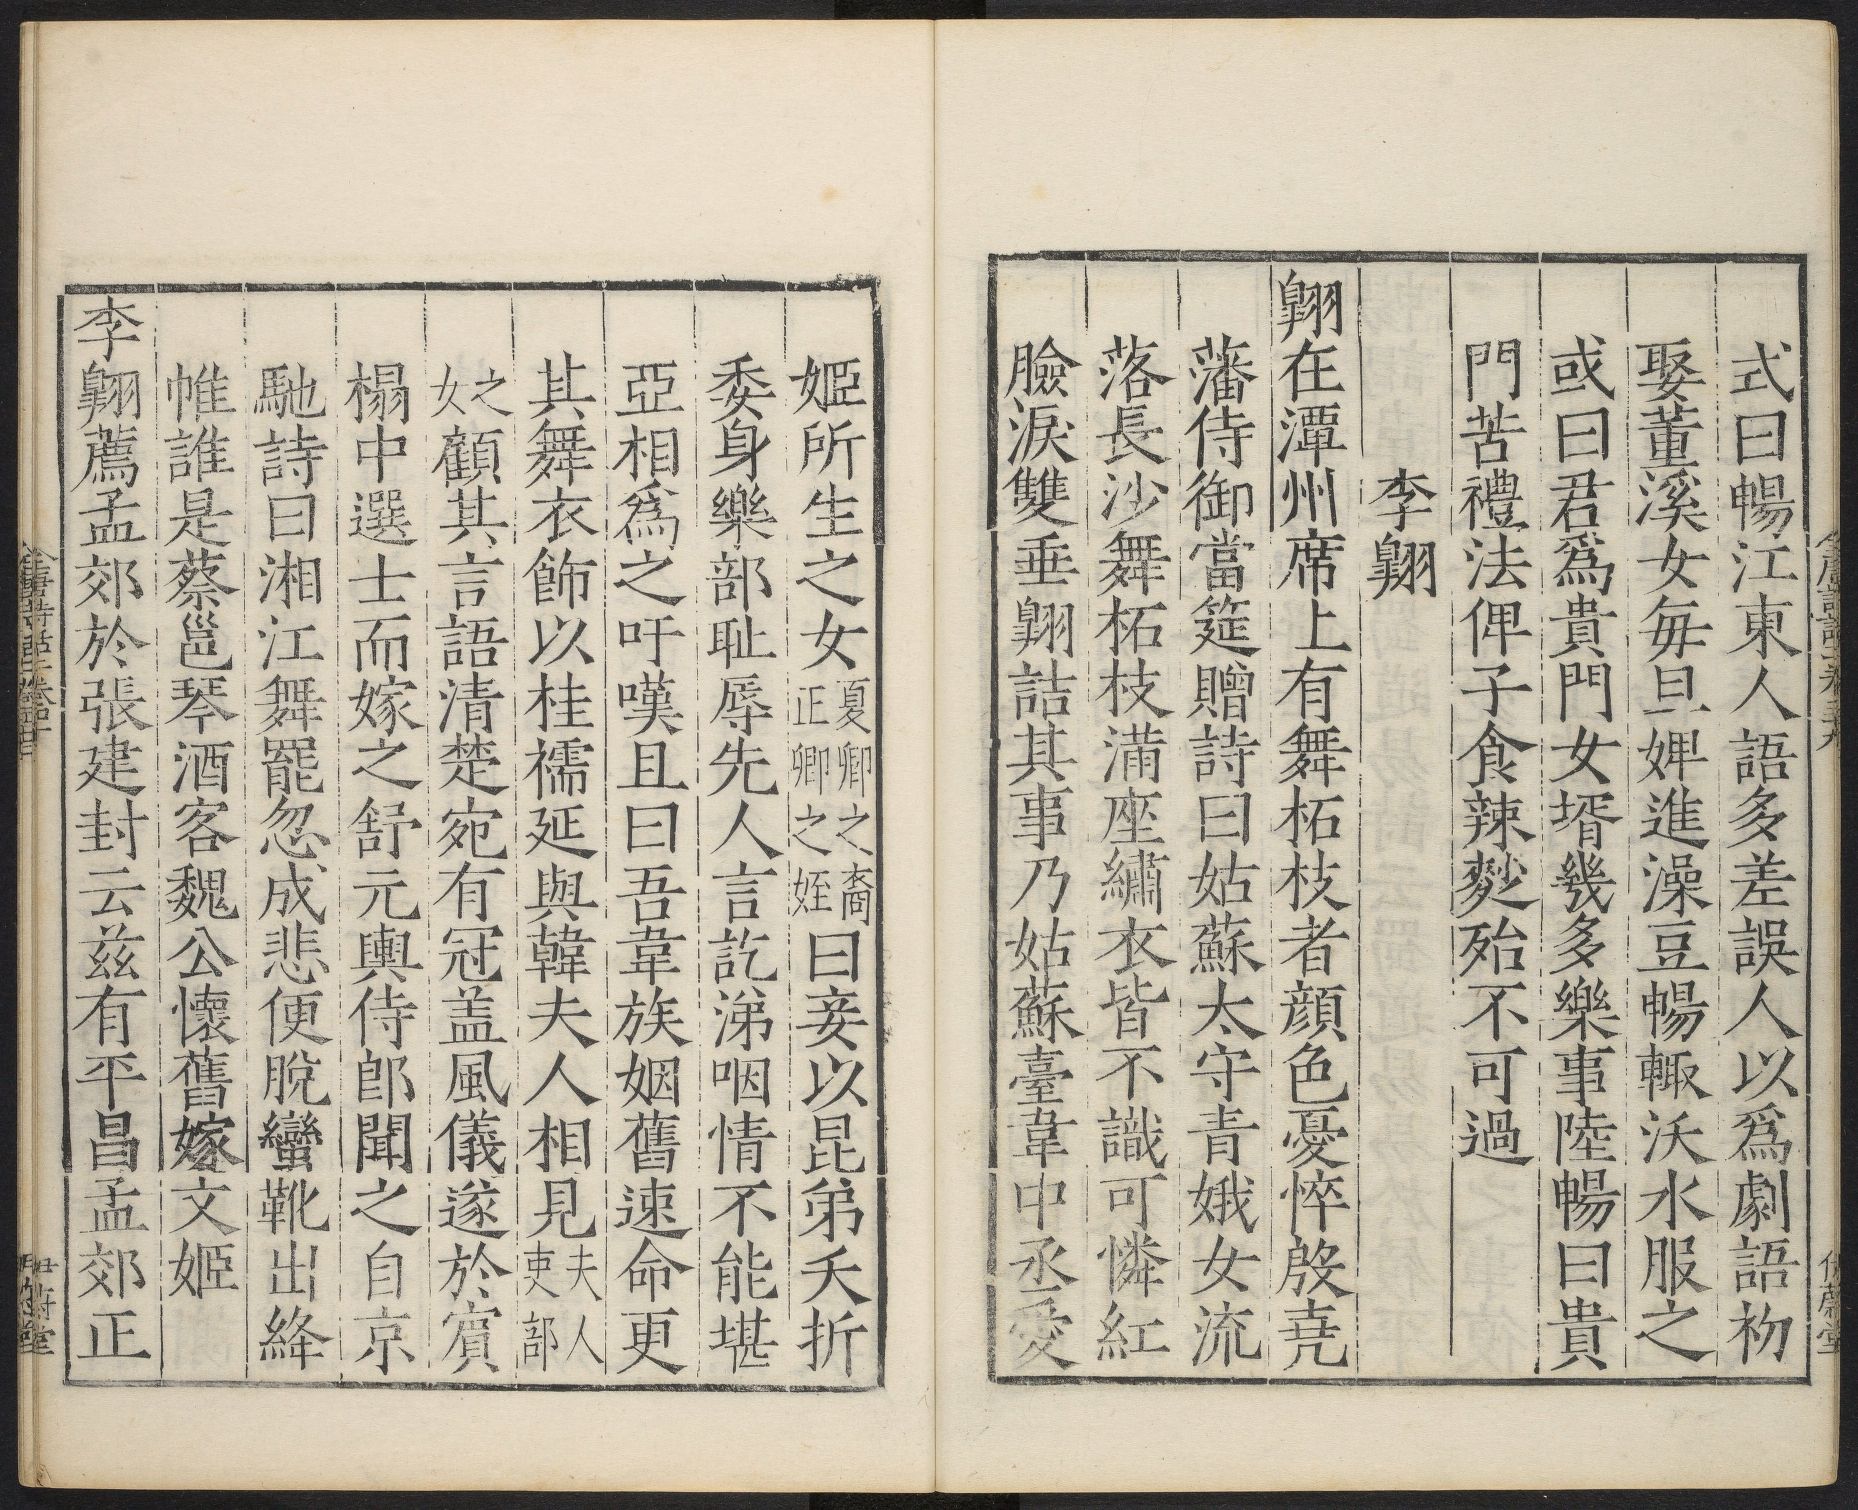 式曰暢江東人語多差誤人以爲劇語初
娶董溪女每旦婢進澡豆暢輙沃水服之
或曰君爲貴門女壻幾多樂事陸暢曰貴
門苦禮法俾子食辣麨殆不可過
李翺
翺在潭州席上有舞柘枝者顔色憂悴殷堯
藩侍御當筵贈詩曰姑蘇太守青娥女流
落長沙舞柘枝滿座繡衣皆不識可憐紅
臉淚雙垂翺詰其事乃姑蘇臺韋中丞愛
姬所生之女夏卿之裔正卿之姪曰妾以昆弟夭折
委身樂部耻辱先人言訖涕咽情不能堪
亞相爲之吁嘆且曰吾韋族姻舊速命更
其舞衣飾以桂襦延與韓夫人相見夫人吏部
之女顧其言語清楚宛有冠盖風儀遂於賓
榻中選士而嫁之舒元輿侍郎聞之自京
馳詩曰湘江舞罷忽成悲便脫蠻靴出絳
帷誰是蔡邕琴酒客魏公懷舊嫁文姬
李翺薦孟郊於張建封云兹有平昌孟郊正